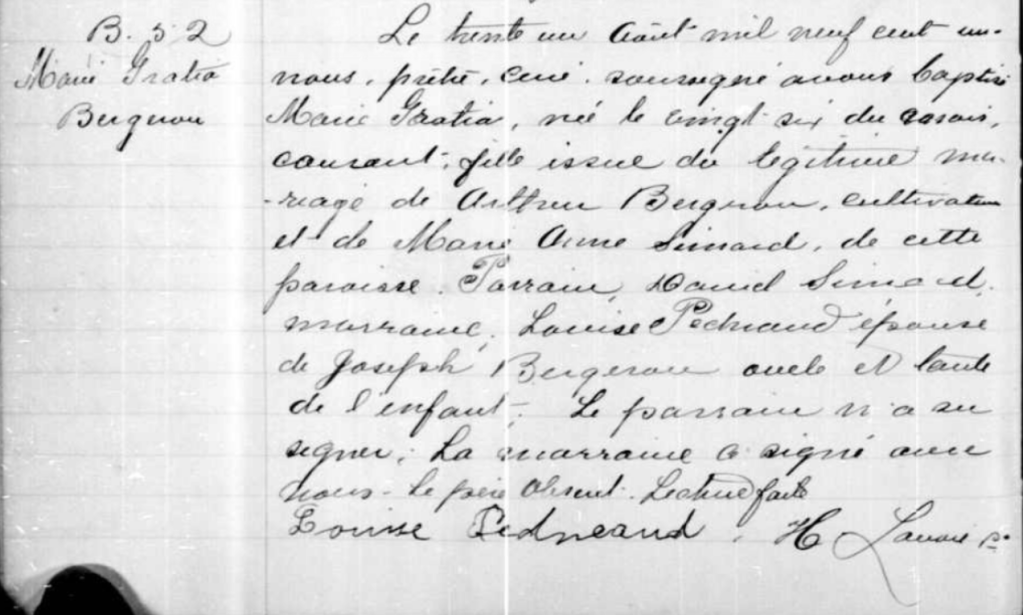 B. 52
Marie Gratia
Bergeron
Le trente un Août mil neuf cent un.
nous, prêtre, curé, soussigné avons baptisé
Marie Gratia, née le vingt six du
courant, fille issue du légitime ma-
-riage de Arthur Bergeron, cultivateur
et de Marie Anne Simard, de cette
paroisse. Parrain, Daniel Simard,
marraine, Louise Pedneaud épouse
de Joseph Bergeron oncle et tante
de l'enfant. Le parrain n'a su
signer, La marraine a signé avec
nous. le père absent. Lecture faite
Louise Pedneaud. H Lavoie p.